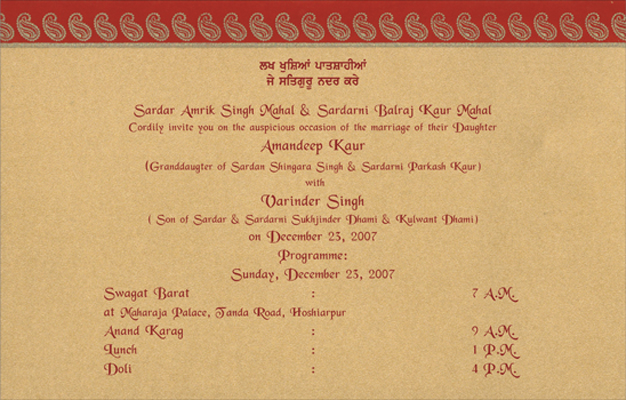 ਲਖ ਖੁਸ਼ਿਆਂ ਪਾਤਸ਼ਾਹੀਆਂ
ਜੇ ਸਤਿਗੁਰੂ ਨਦਰ ਕਰੇ
Sardar Amrik Singh Mahal & Sardarni Balraj Kaur Mahal
Cordily invite you on the auspicious occasion of the marriage of their Daughter
Amandeep Kaur
(Granddaugter of Sardan Shingara Singh & Sardarni Parkash Kaur)
with
Varinder Singh
( Son of Sardar & Sardarni Sukhjinder Dhami & Kulwant Dhami)
on December 23, 2007
Programme:
Sunday, December 23, 2007
Swagat Barat : 7 A.M.
at Maharaja Palace, Tanda Road, Hoshiarpur
Anand Karag : 9 A.M.
Lunch : 1 P.M.
Doli : 4 P.M.